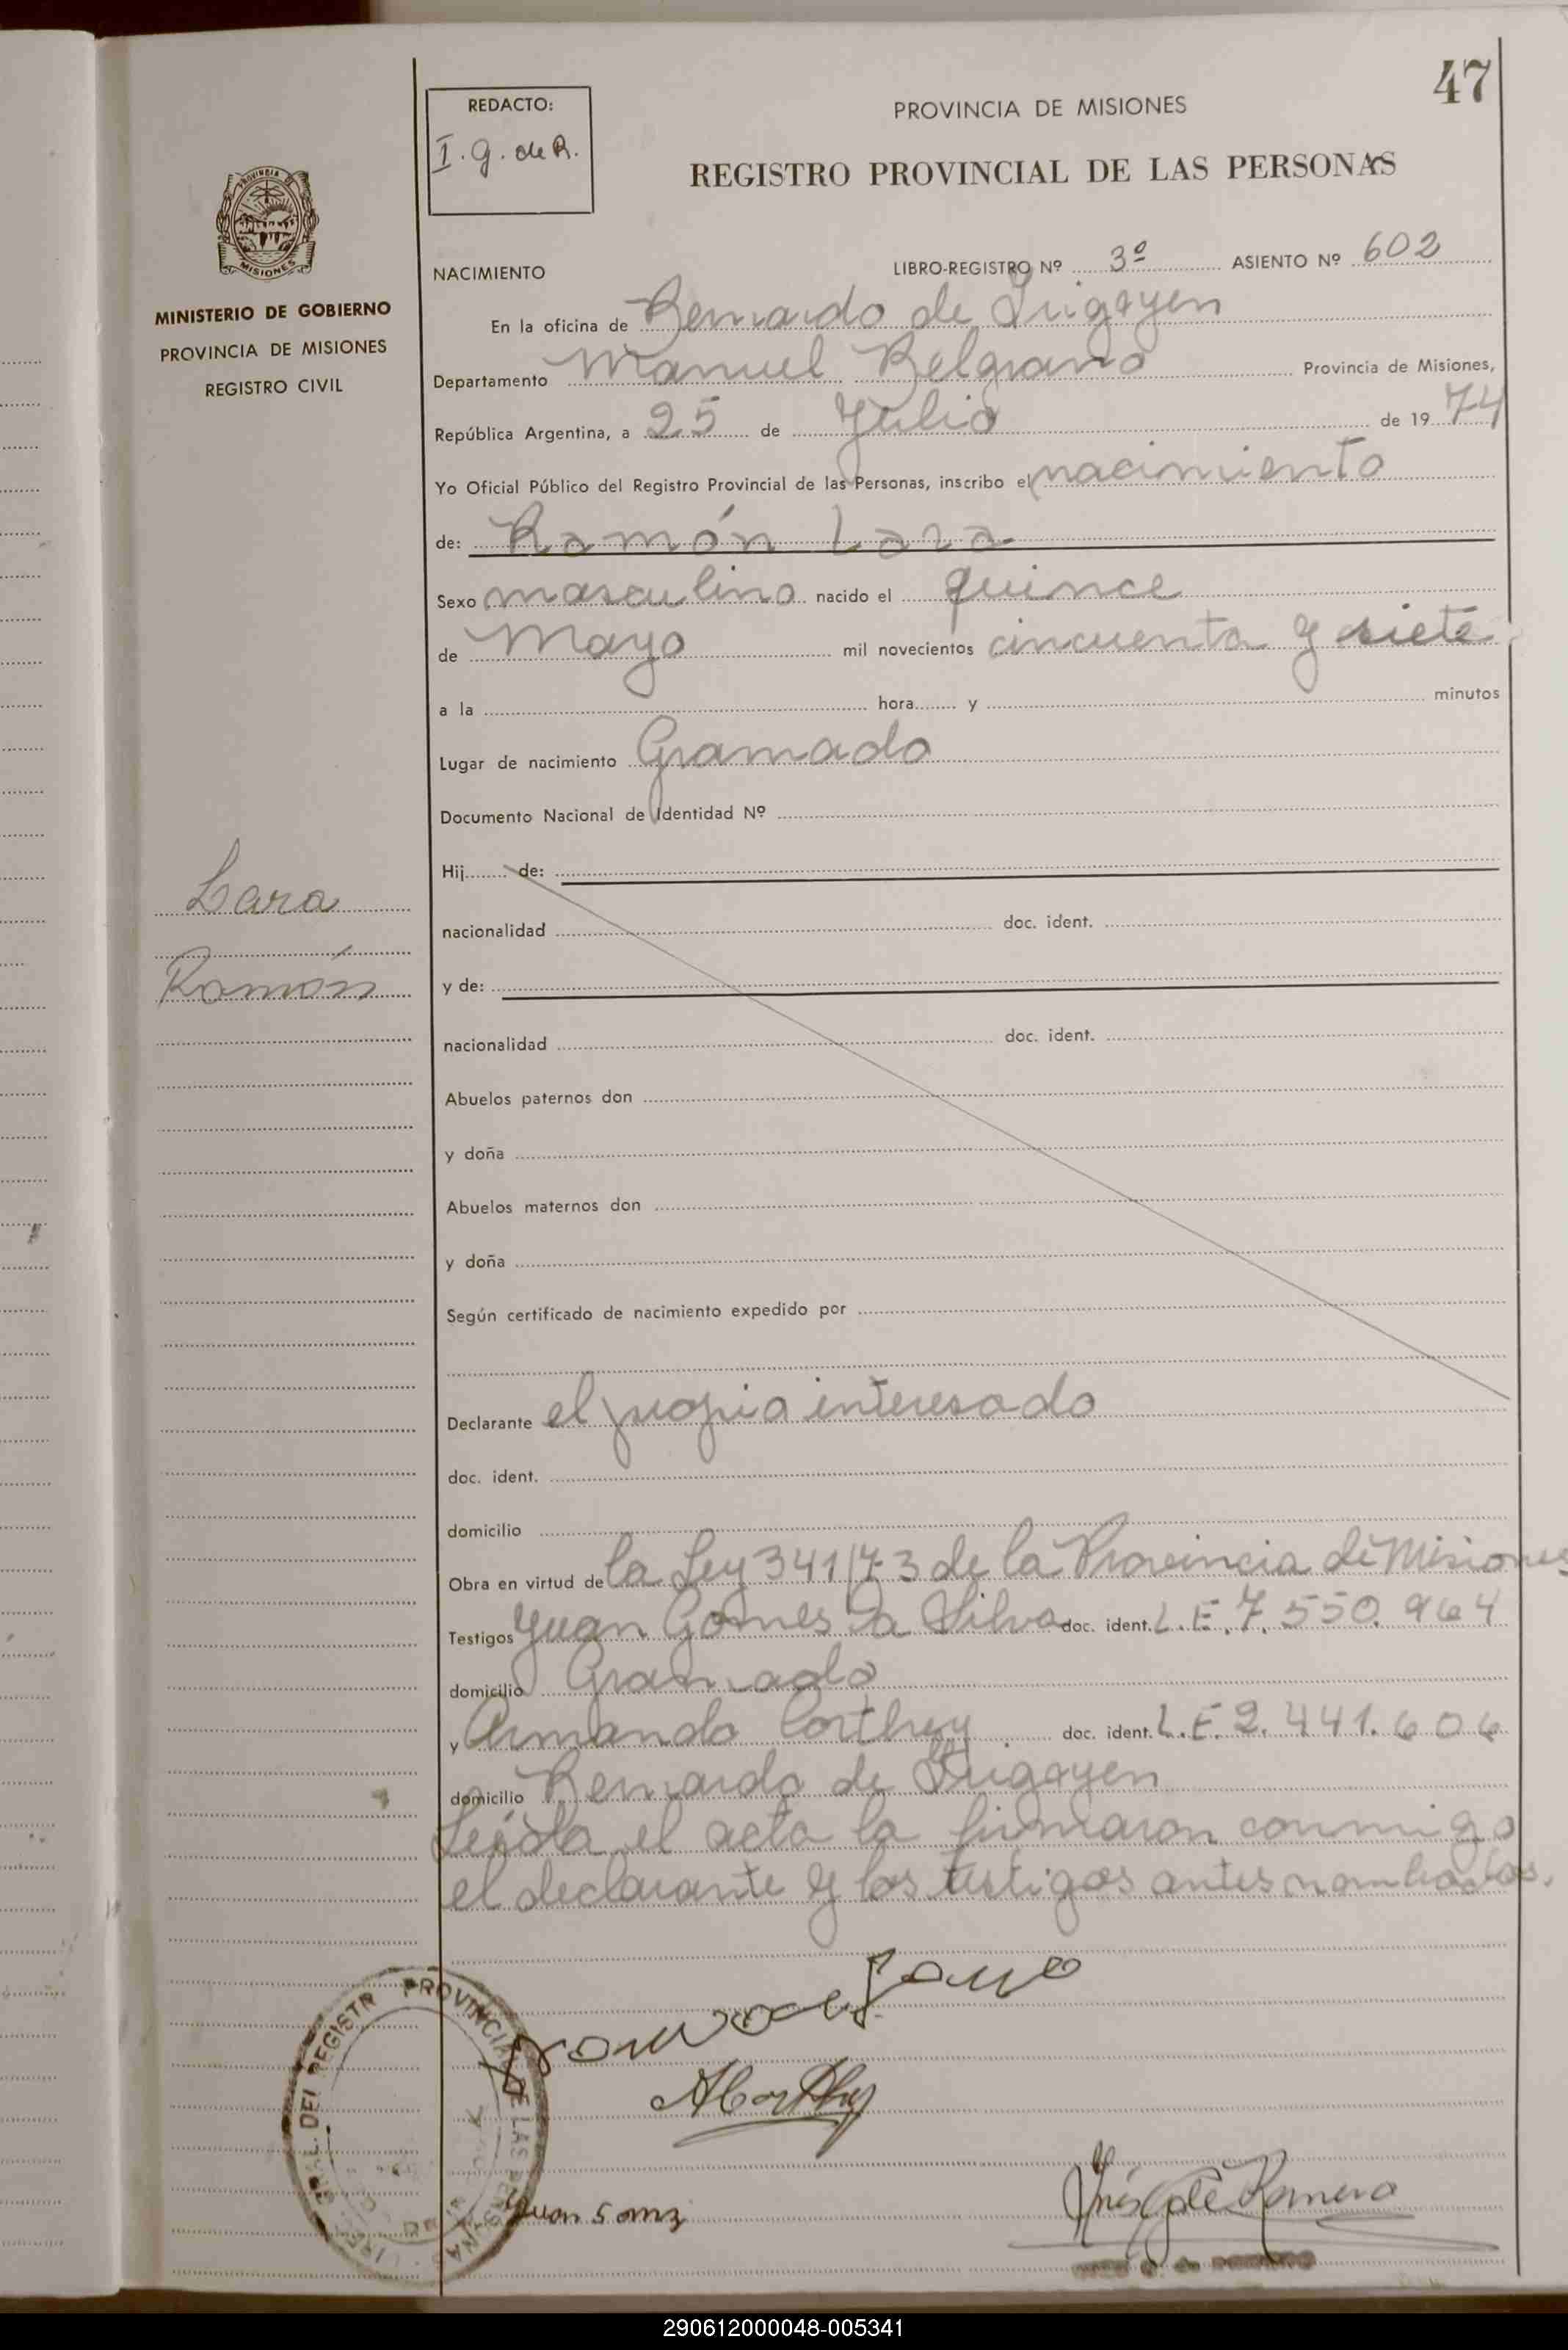 47
REDACTO:
I. g. de R.
PROVINCIA DE MISIONES
REGISTRO PROVINCIAL DE LAS PERSONAS
PROVINCIA
MISIONES
MINISTERIO DE GOBIERNO
PROVINCIA DE MISIONES
REGISTRO CIVIL
NACIMIENTO LIBRO-REGISTRO Nº 3º ASIENTO Nº 602
En la oficina de Bernardo de Irigoyen
Departamento Manuel Belgrano Provincia de Misiones,
República Argentina, a 25 de Julio de 1974
Yo Oficial Público del Registro Provincial de las Personas, inscribo el nacimiento
de: Ramón Lara
Sexo masculino nacido el quince
de Mayo mil novecientos cincuenta y siete
a la hora y minutos
Lugar de nacimiento Gramado
Documento Nacional de Identidad Nº
Hij de:
Lara
nacionalidad doc. ident.
Ramón
y de:
nacionalidad doc. ident.
Abuelos paternos don
y doña
Abuelos maternos don
y doña
Según certificado de nacimiento expedido por
Declarante el propio interesado
doc. ident.
domicilio
Obra en virtud de la Ley 341/73 de la Provincia de Misiones
Testigos Juan Gomes Da Silva doc. ident. L.E. 7.550.964
domicilio Gramado
y Armando Corthey doc. ident. L.E. 2.441.606
domicilio Bernardo de Irigoyen
Leída el acta la firmaron conmigo
el declarante y los testigos antes nombrados.
ACorthey
Juan Gomz
Inés G de Romero
GRAL. DEL REGISTR PROVINCIAL DE LAS PERSONAS
290612000048-005341